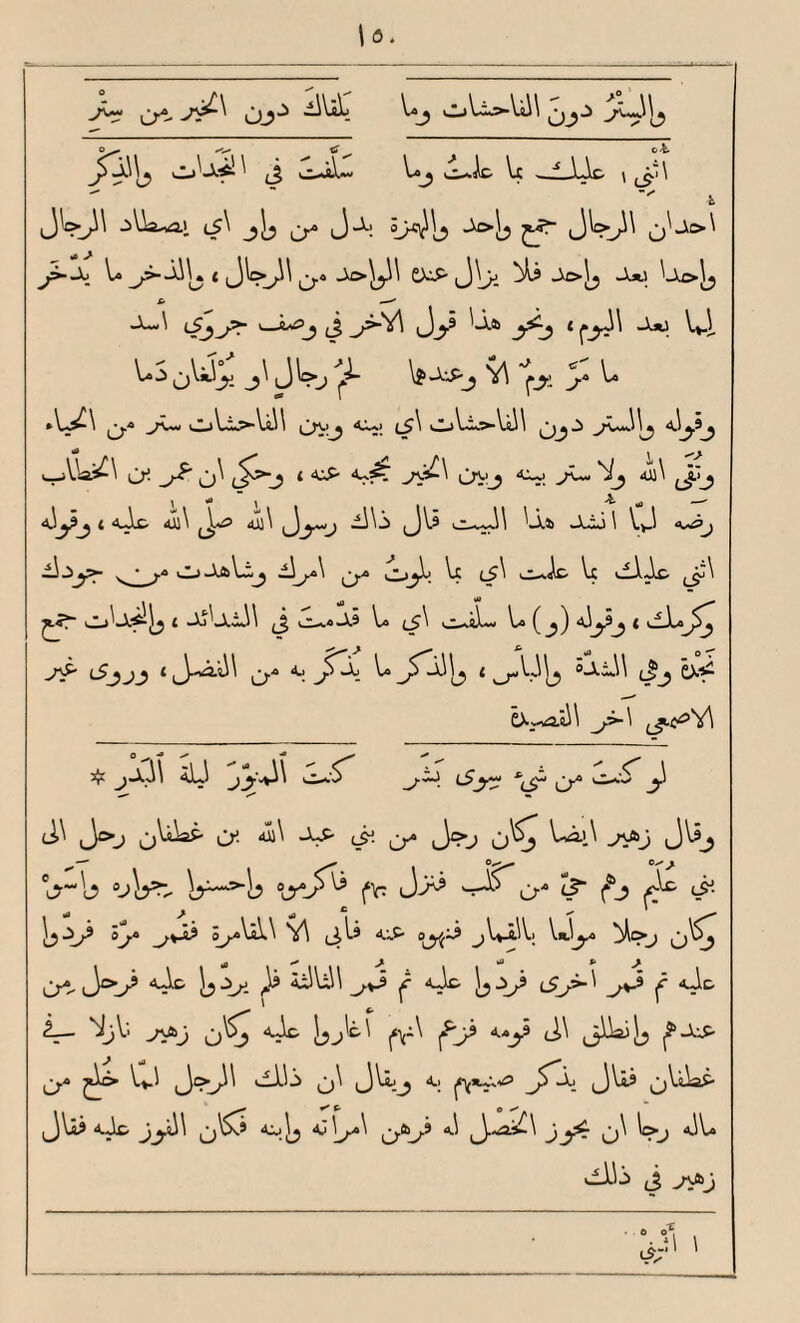 ١٥.
وَالسِّتْرُ دُونَ الفاحشاتِ وَما يَلْقاكَ دُونَ الخيرِ مِن سِتْرِ
أُثْنِى ١ عليك بما عَلِمْتَ وَما سَلَّفْتَ فى النَّجَداتِ وَالذِّكْرِ
احدان الرجال جمع واحد والهمزة بدل من واو اى يصطاد الرجال
واحدا بعد واحد فلا يزال عند الواحد من الرجال، والذُخْر ما يدخر
لما بعد اليوم، ونحو هذا قول الآخر فى وصف جروى اسد
ما مرّ يومٌ الّا وعندهما لحمُ رجالٍ او يولغانِ دما
وقوله والستر دون الفاحشات اى بينه وبين الفاحشات ستر من الحياء
وتُقى الله ولا ستر بينه وبين الخير يحجبه عنه، وحُكِى ان عمر بن الخطاب
رضه لما انشد هذا البيت قال ذاك رسول الله صلى الله عليه، وقوله
اثنى عليك بما علمت اى بما بلوت من امرك وشاهدت من جودك
وكرمك، وقوله (و) ما سلّفت اى ما قدّمت فى الشدائد، والنجدات جمع
نجدة وهى الشدة والبأس، والذكر ما يذكر به من الفضل، وروى غير
الاصمعى اخر
لو كنتَ من شىءٍ سوى بَشَرٍ كنتَ المُنَوِّرَ ليلةَ البَدْرِ *
وقال زهير ايضا وكان رجل من بنى عبد الله بن غطفان رحل الى
بنى عُلَيم وهم حىّ من كَلْب فنزل بهم فاكرموه واحسنوا جواره وآسَوْه
وكان رجلا مولعا بالقمار فنهوه عنه فابى الا المقامرة فقُمر مرة فردّوا
عليه ثم قُمر اخرى فردّوا عليه ثم قُمر الثالثة فلم يردّوا عليه فرحل من
عندهم وانطلق الى قومه فزعم انهم اغاروا عليه وكان زهير نازلا فى
غطفان فقال يذكر صنيعهم به ويقال ان ذلك الرجل لما خلع من
ماله رجا ان يحوز الخَصْل له فرهن امرأته وابنه فكان الفوز عليه فقال
زهير فى ذلك
١ أُثْنِى